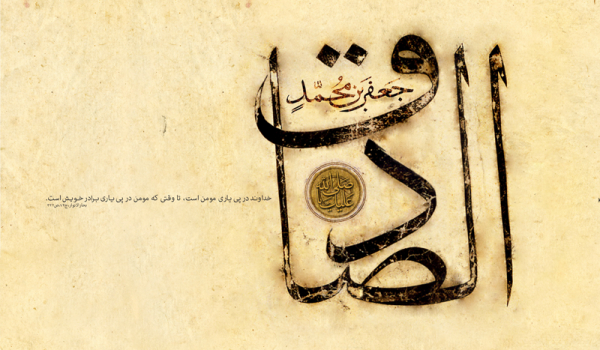 الصادق
جَعفَر بنِ مُحَمَّدٍ
صلی الله علیك یا
خداوند در پی یاری مومن است، تا وقتی که مومن در پی یاری برادر خویش است.